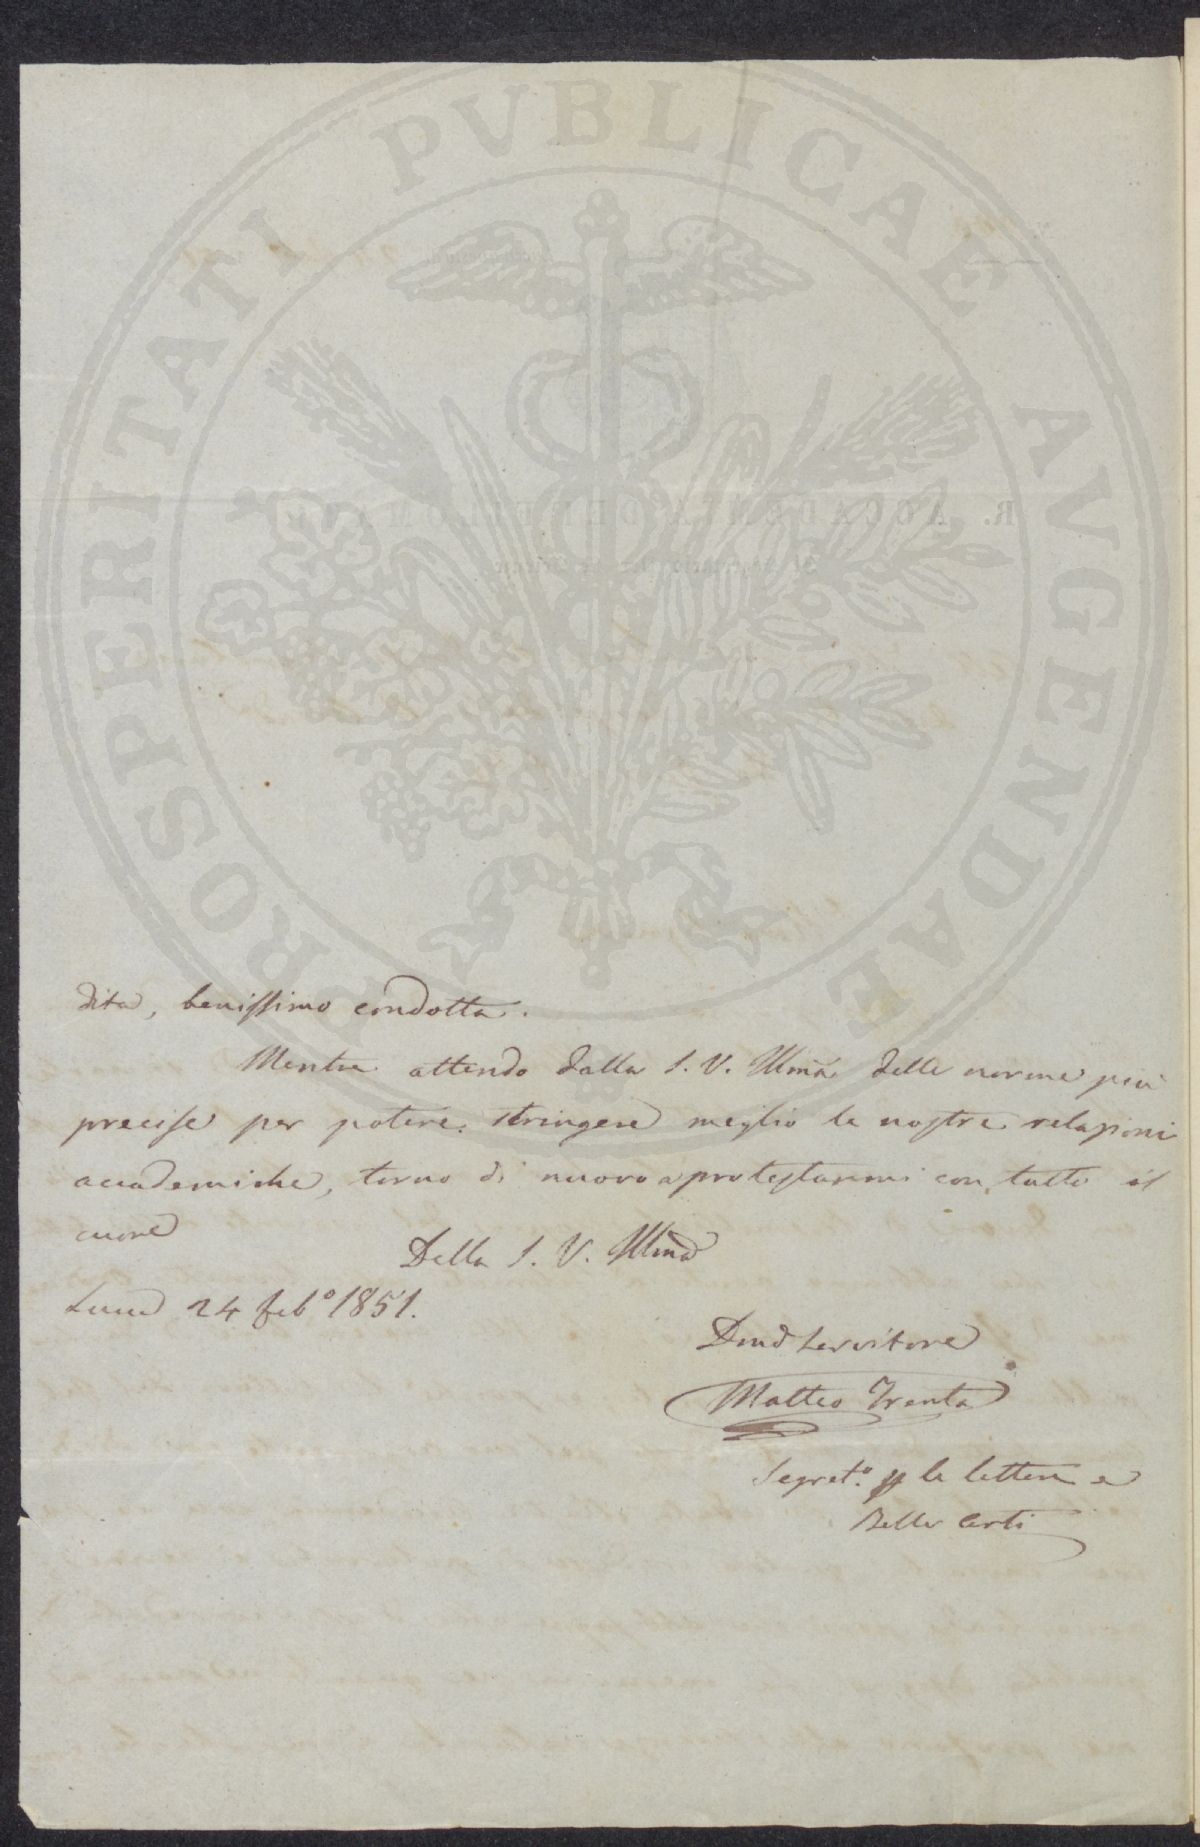 PROSPERITATI PVBLICAE AVGENDAE
dita, benissimo condotta.
Mentre attendo dalla S. V. Illma delle norme più
precise per potere stringere meglio le nostre relazioni
accademiche, torno di nuovo a protestarmi con tutto il
cuore
Della S. V. Illma
Lucca 24 feb.º 1851.
Servitore
Matteo Trenta
Segret.º le lettere e
Belle Arti